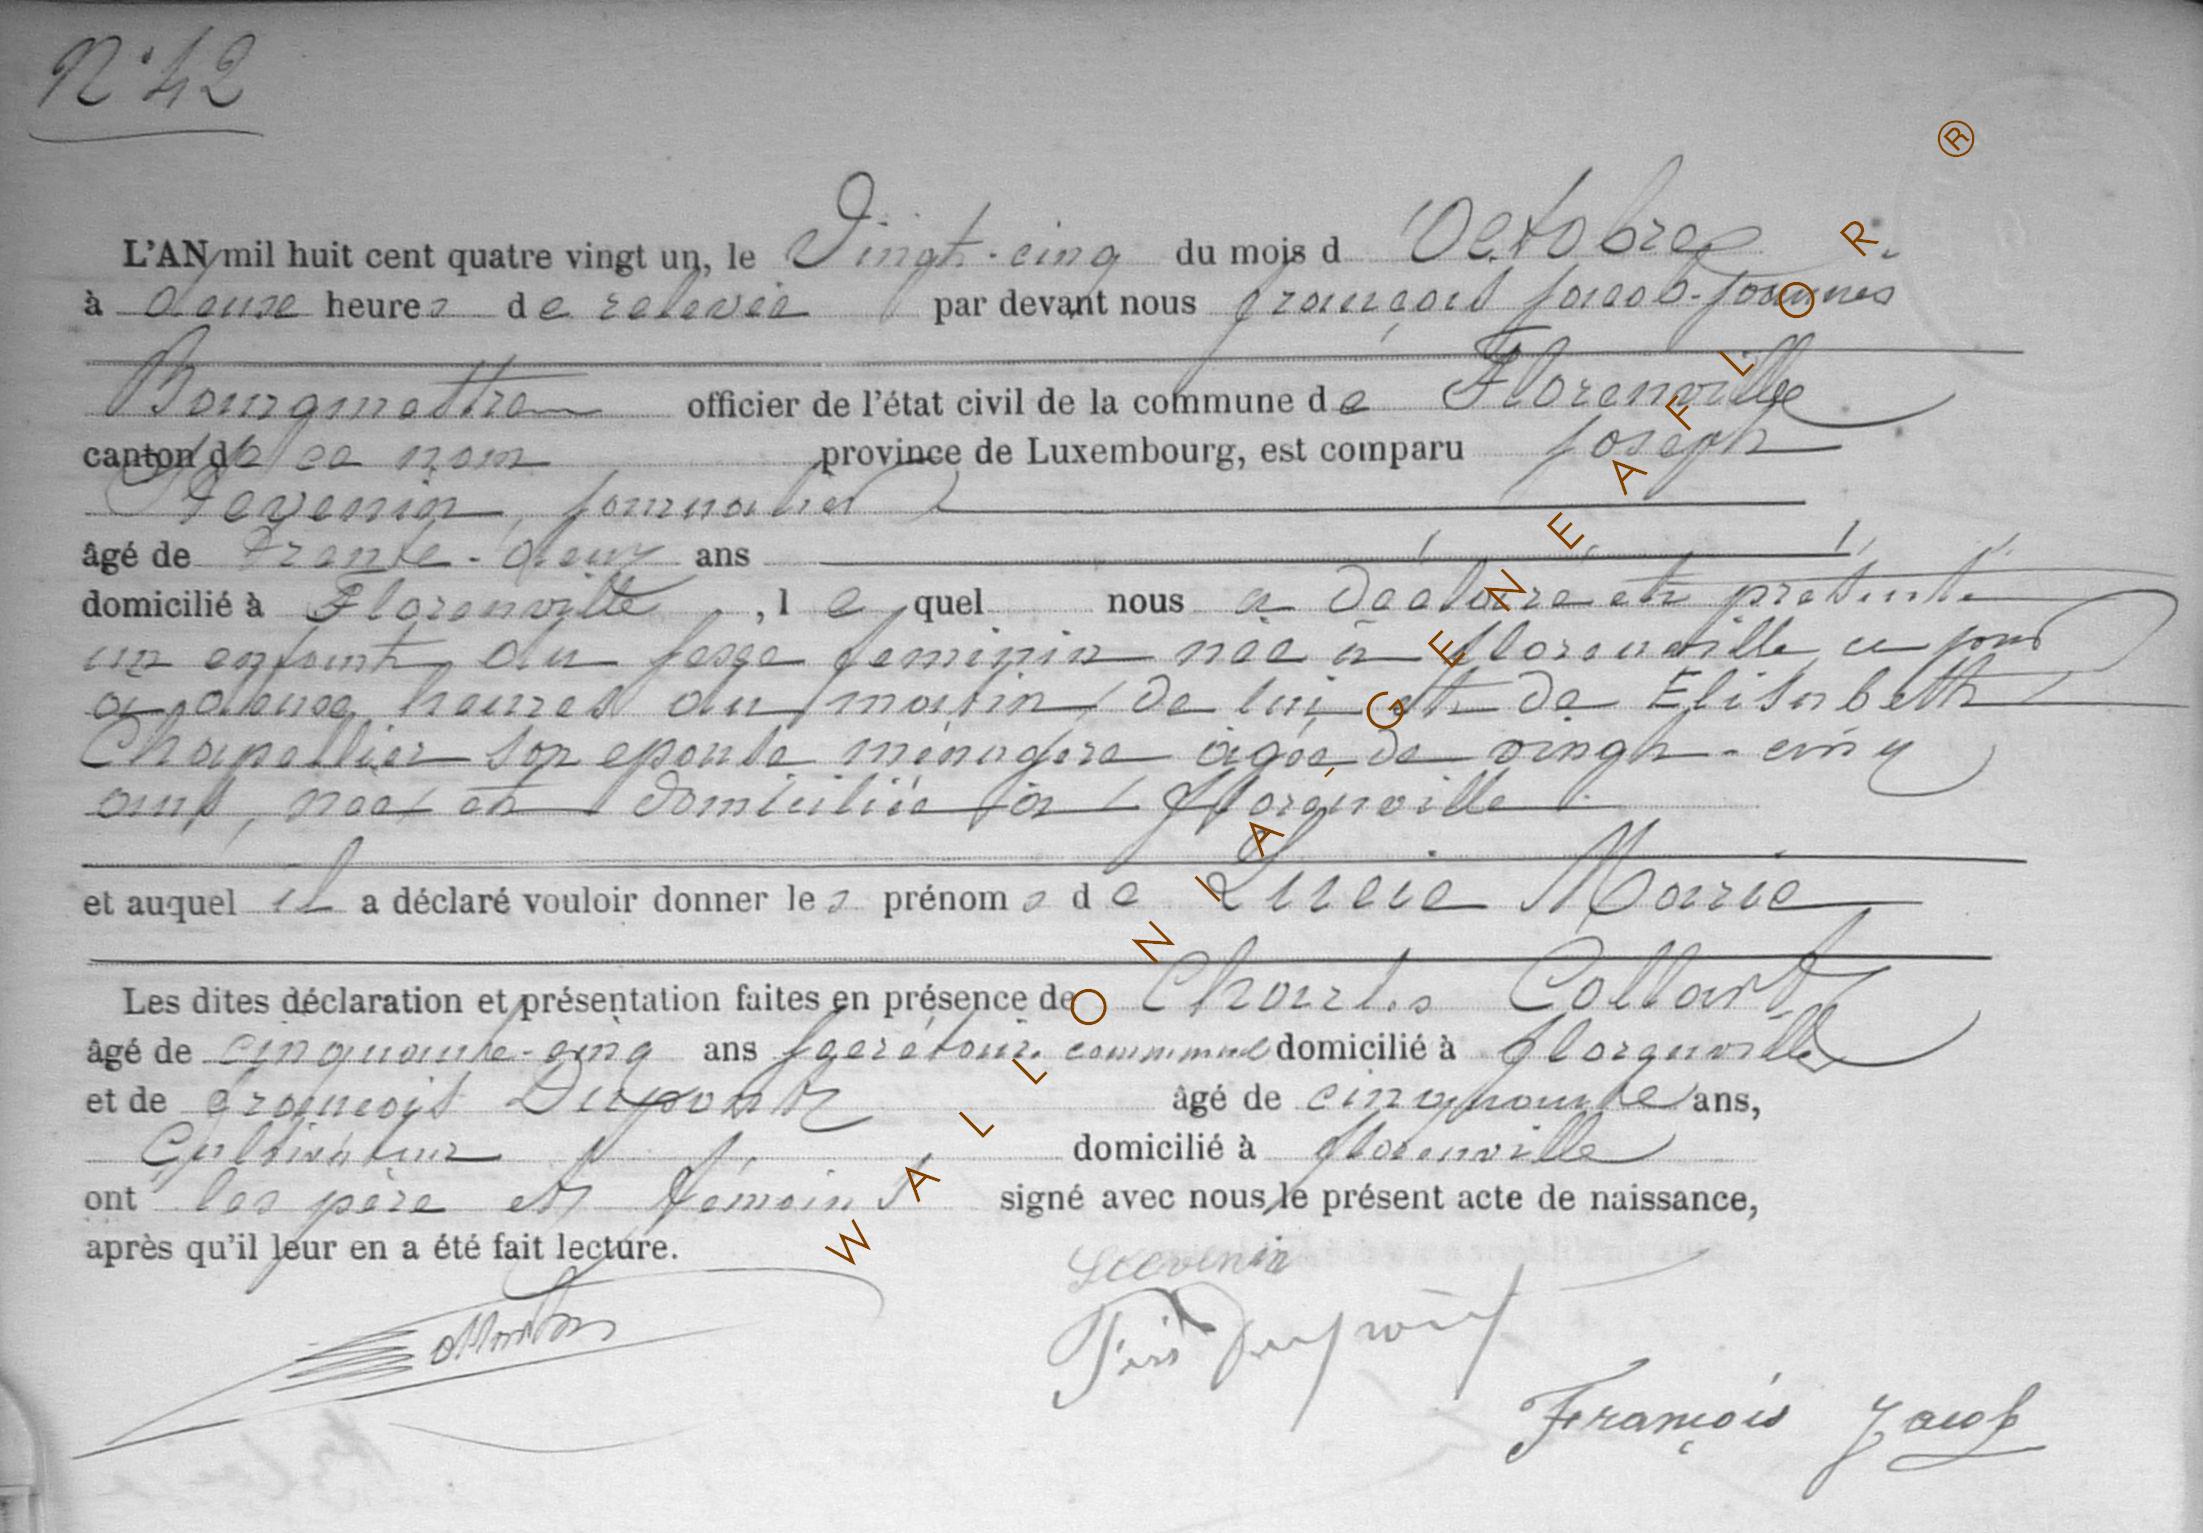 N° 42
L'AN mil huit cent quatre vingt un, le Vingt-cinq du mois d'Octobre
à deuxe heures de relevée par devant nous François Jacob-Joannes
Bourgmettre officier de l'état civil de la commune de Florenville
canton de ce nom province de Luxembourg, est comparu Joseph
Stevenin, journalier
âgé de Trente-deux ans
domicilié à Florenville, lequel nous a déclaré et présenté
un enfant du sexe feminin née à florenville ce jour
à deuxe heures du matin de lui et de Elisabeth
Chapellier son epouse ménagère âgée de vingt-cinq
ans, née et domiciliée à Florenville
et auquel il a déclaré vouloir donner les prénoms de Lucie Marie
Les dites déclaration et présentation faites en présence de Charles Collard
âgé de cinquante-cinq ans secrétaire communal domicilié à florenville
et de François Dupont âgé de cinquante ans,
Cultivateur domicilié à florenville
ont les père et témoins signé avec nous le présent acte de naissance,
après qu'il leur en a été fait lecture.
Steevenin
Dupont
François Jacob
WALLONIA GENEAFLOR ®